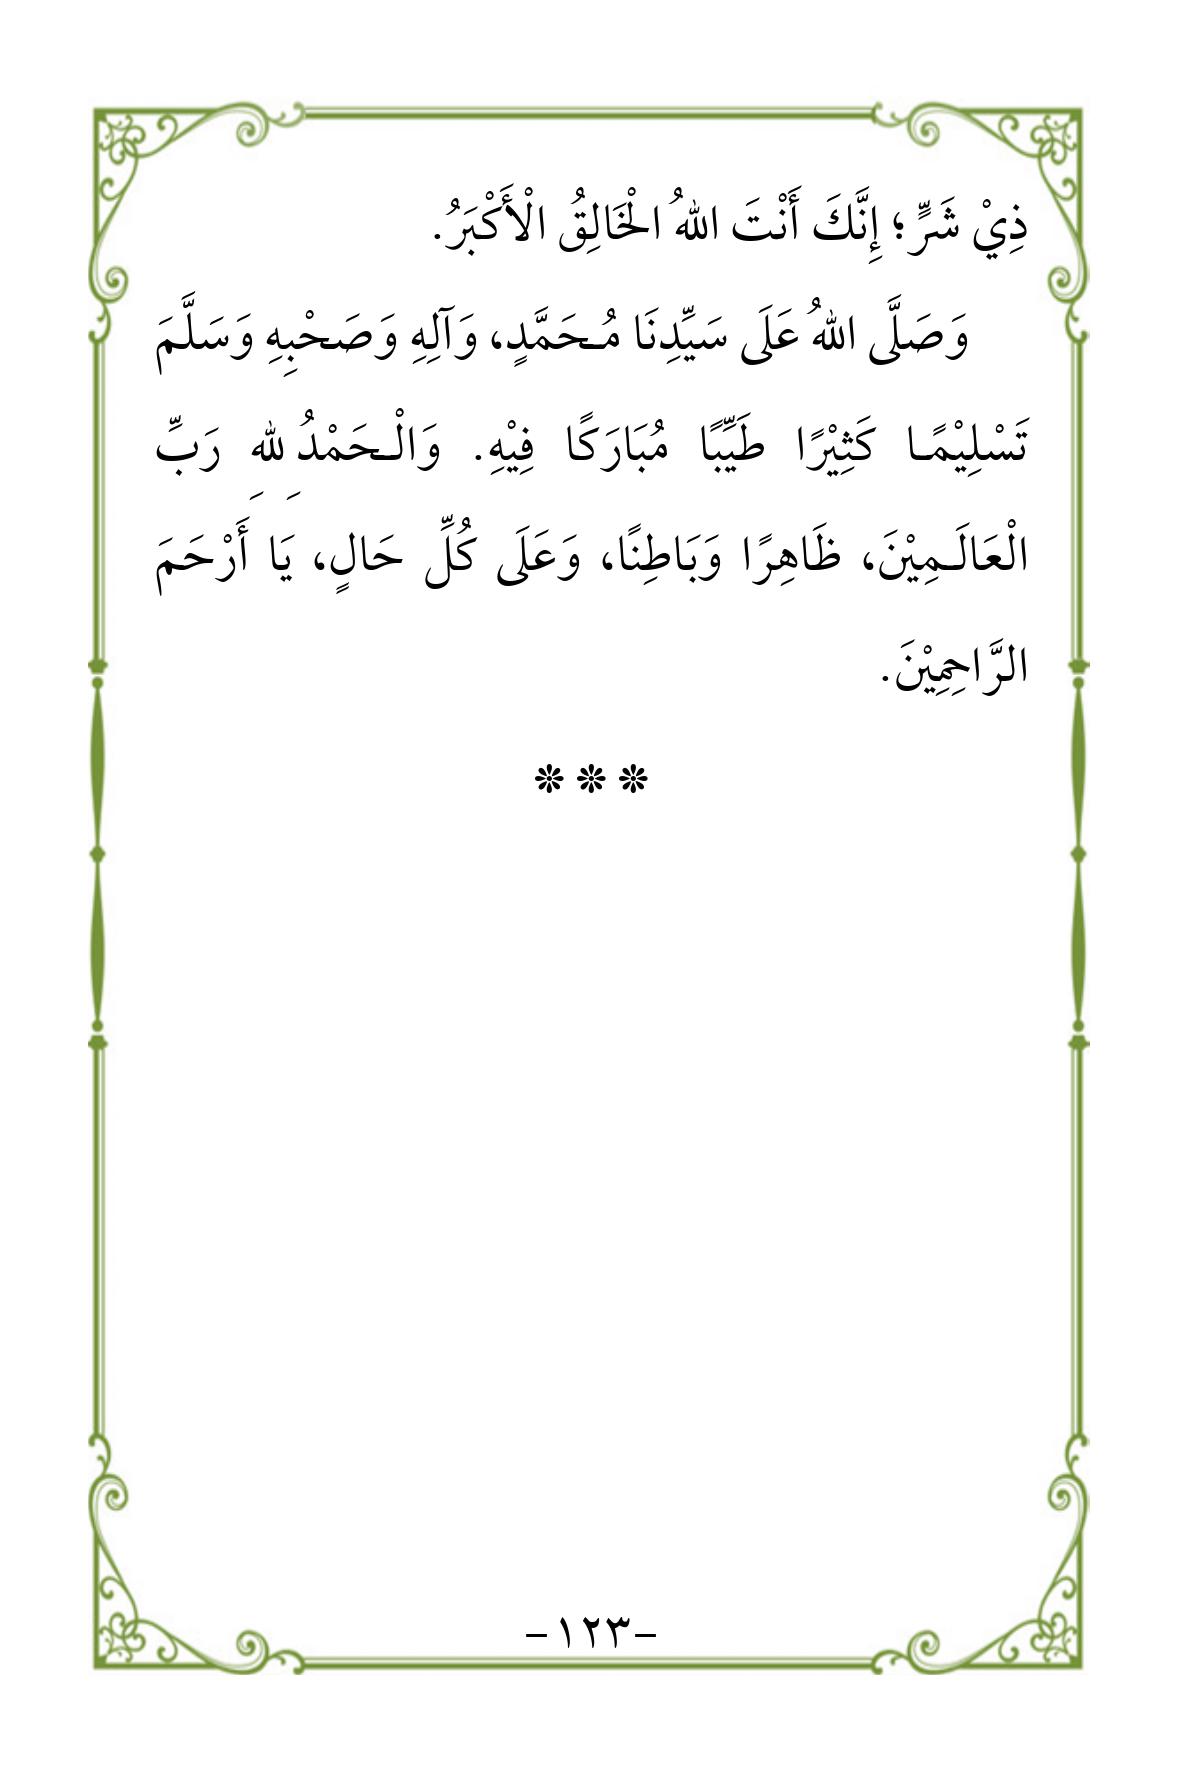 ذِيْ شَرٍّ؛ إِنَّكَ أَنْتَ اللهُ الْخَالِقُ الْأَكْبَرُ.
وَصَلَّى اللهُ عَلَى سَيِّدِنَا مُـحَمَّدٍ، وَآلِهِ وَصَحْبِهِ وَسَلَّمَ
تَسْلِيْمًـا كَثِيْرًا طَيِّبًا مُبَارَكًا فِيْهِ. وَالْـحَمْدُ لِلهِ رَبِّ
الْعَالَـمِيْنَ، ظَاهِرًا وَبَاطِنًا، وَعَلَى كُلِّ حَالٍ، يَا أَرْحَمَ
الرَّاحِمِيْنَ.
❊ ❊ ❊
-١٢٣-